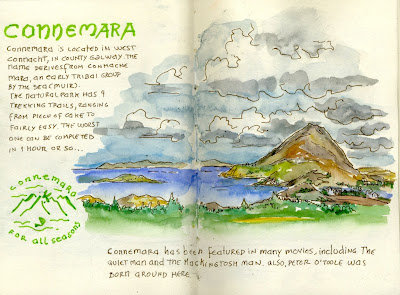 CONNEMARA
CONNEMARA IS LOCATED IN WEST
CONNACHT, IN COUNTY GALWAY. THE
NAME DERIVES FROM CONMACHE
MARA, AN EARLY TRIBAL GROUP
BY THE SEA (MUIR).
THE NATURAL PARK HAS 4
TREKKING TRAILS, RANGING
FROM PIECE OF CAKE TO
FAIRLY EASY. THE WORST
ONE CAN BE COMPLETED
IN 1 HOUR OR SO...
CONNEMARA
FOR ALL SEASONS
CONNEMARA HAS BEEN FEATURED IN MANY MOVIES, INCLUDING THE
QUIET MAN AND THE MACKINGTOSH MAN. ALSO, PETER O'TOOLE WAS
BORN AROUND HERE